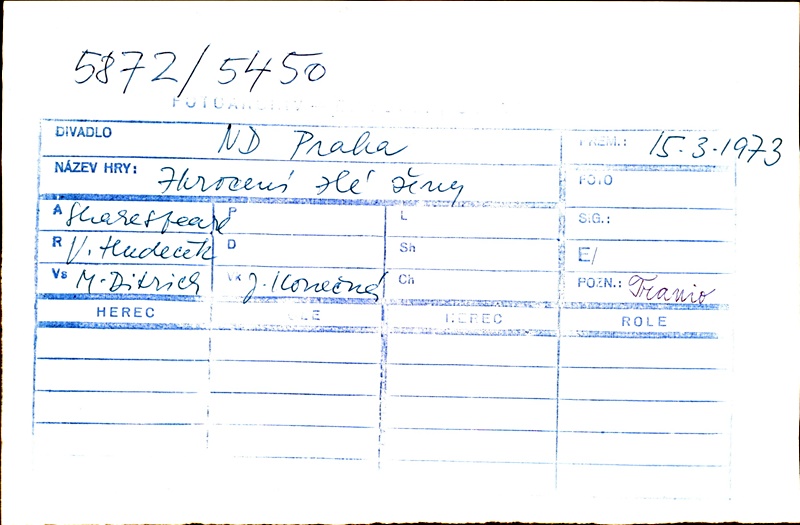 5872/5450
FOTOARCHIV
DIVADLO ND Praha PREM.: 15.3.1973
NÁZEV HRY: Zkrocení zlé ženy FOTO
A Shakespeare P L SIG.:
R V. Hudeček D Sh E/
Vs M. Ditrich Vk J. Konečná Ch POZN.: Tranio
HEREC ROLE HEREC ROLE